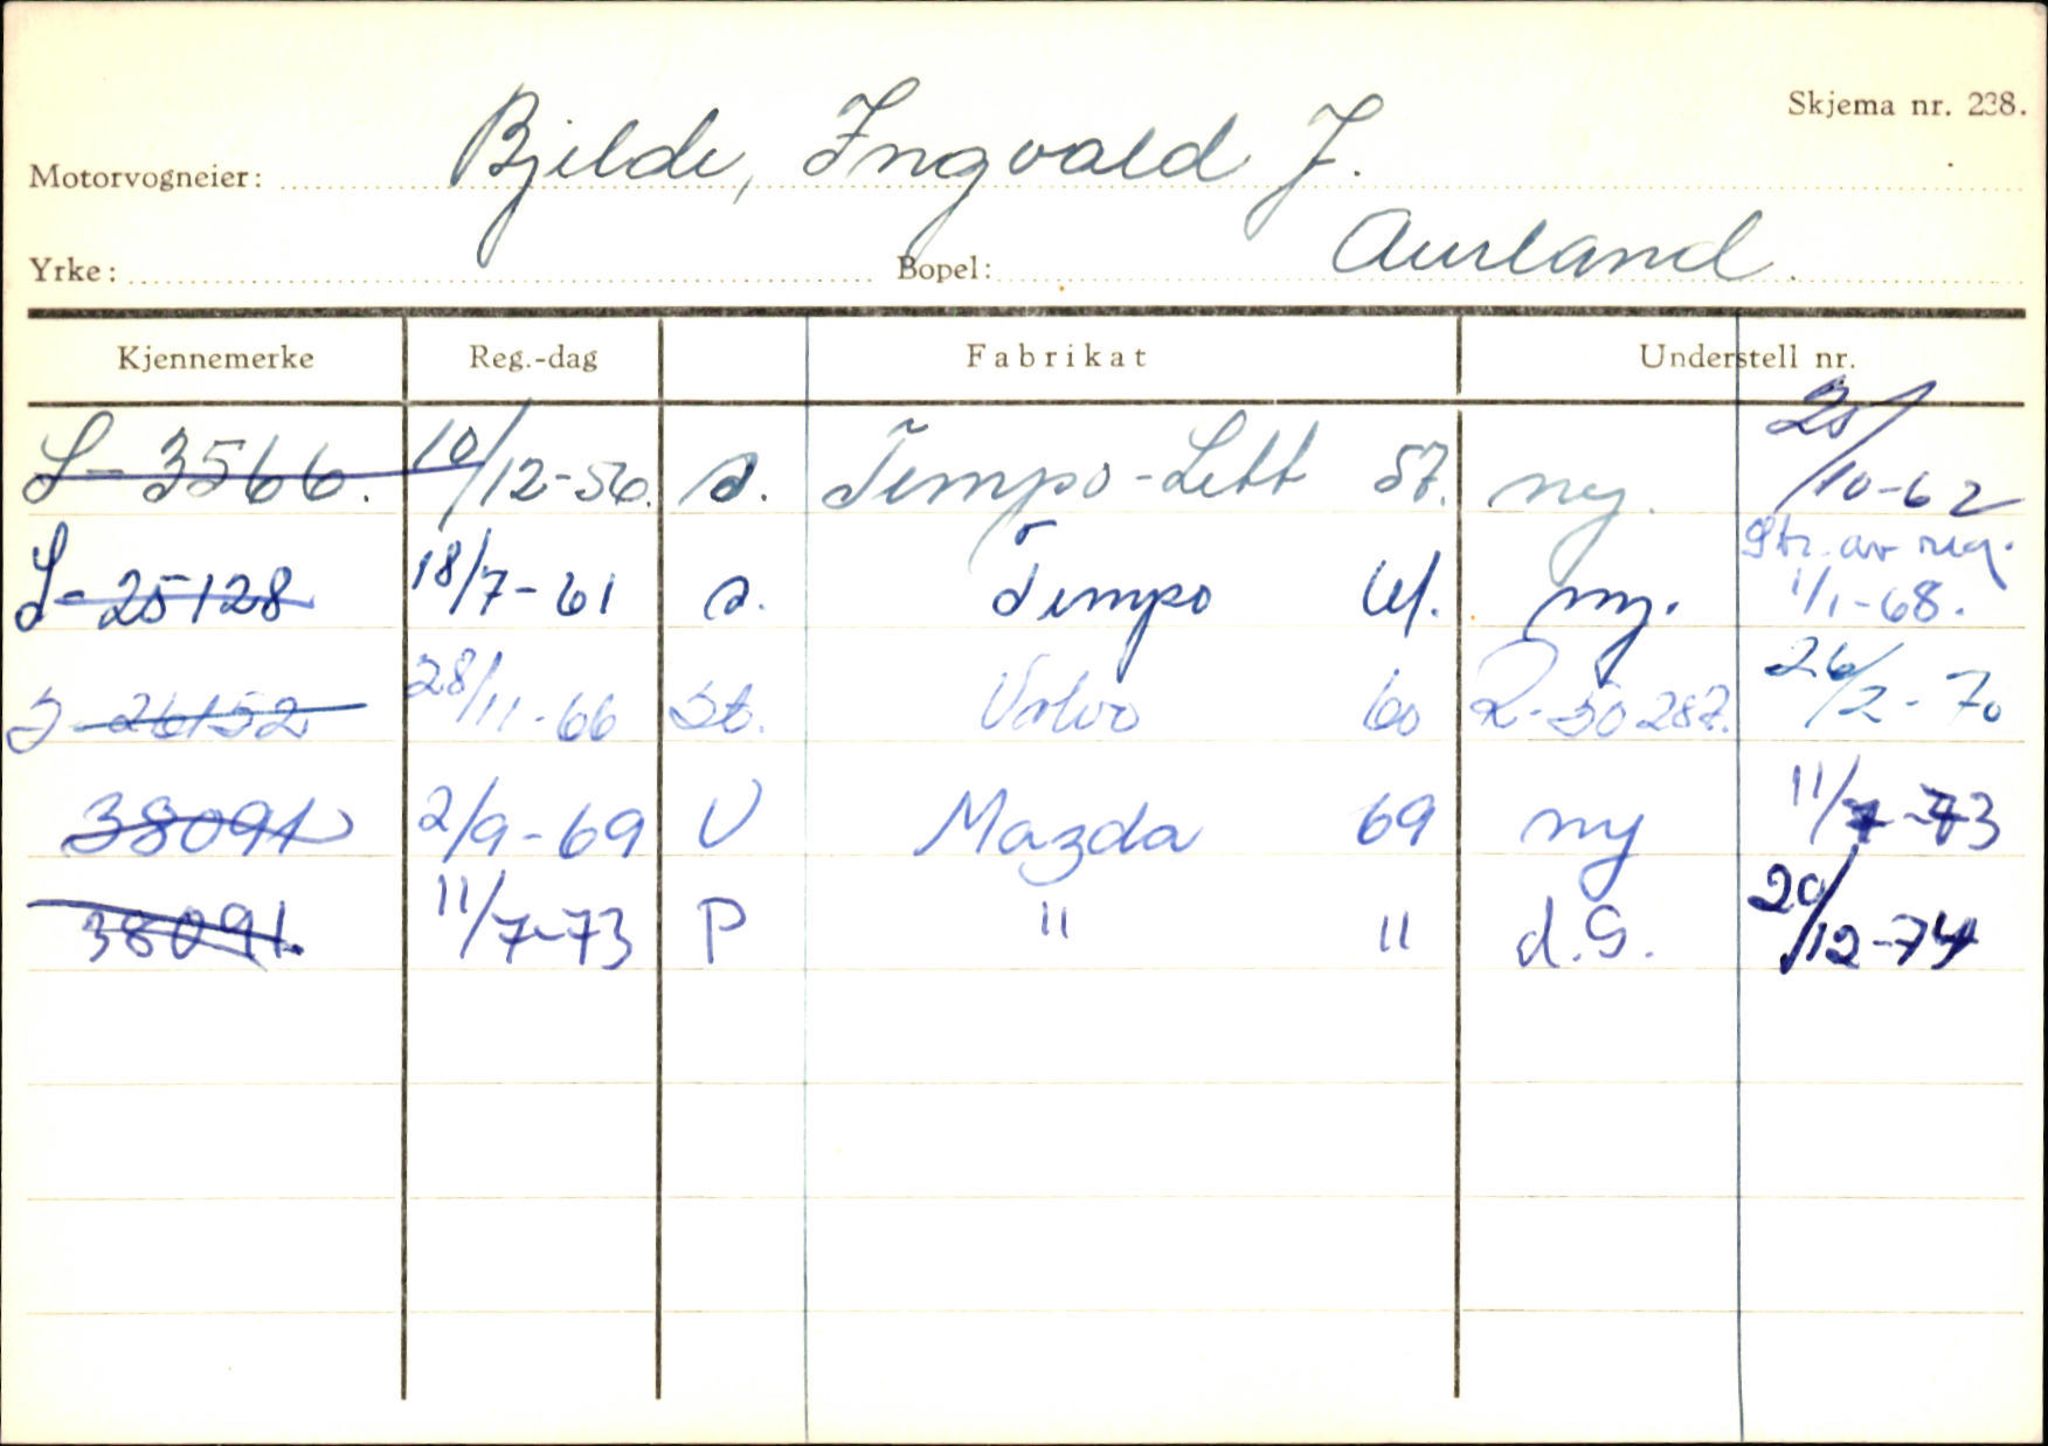 Skjema nr. 238.
Motorvogneier: Bjelde, Ingvald J.
Yrke: Bopel: Aurland.
Kjennemerke Reg.-dag Fabrikat Understell nr.
S-3566. 10/12-56. s. Tempo-Lett 57. ny. 25/10-62
S-25128 18/7-61 s. Tempo 61. ny. Str. av reg. 1/1-68.
S-26152 28/11-66 St. Volvo 60 R-50287. 26/2-70
38091 2/9-69 V Mazda 69 ny 11/7-73
38091. 11/7-73 P " " d.S. 20/12-74